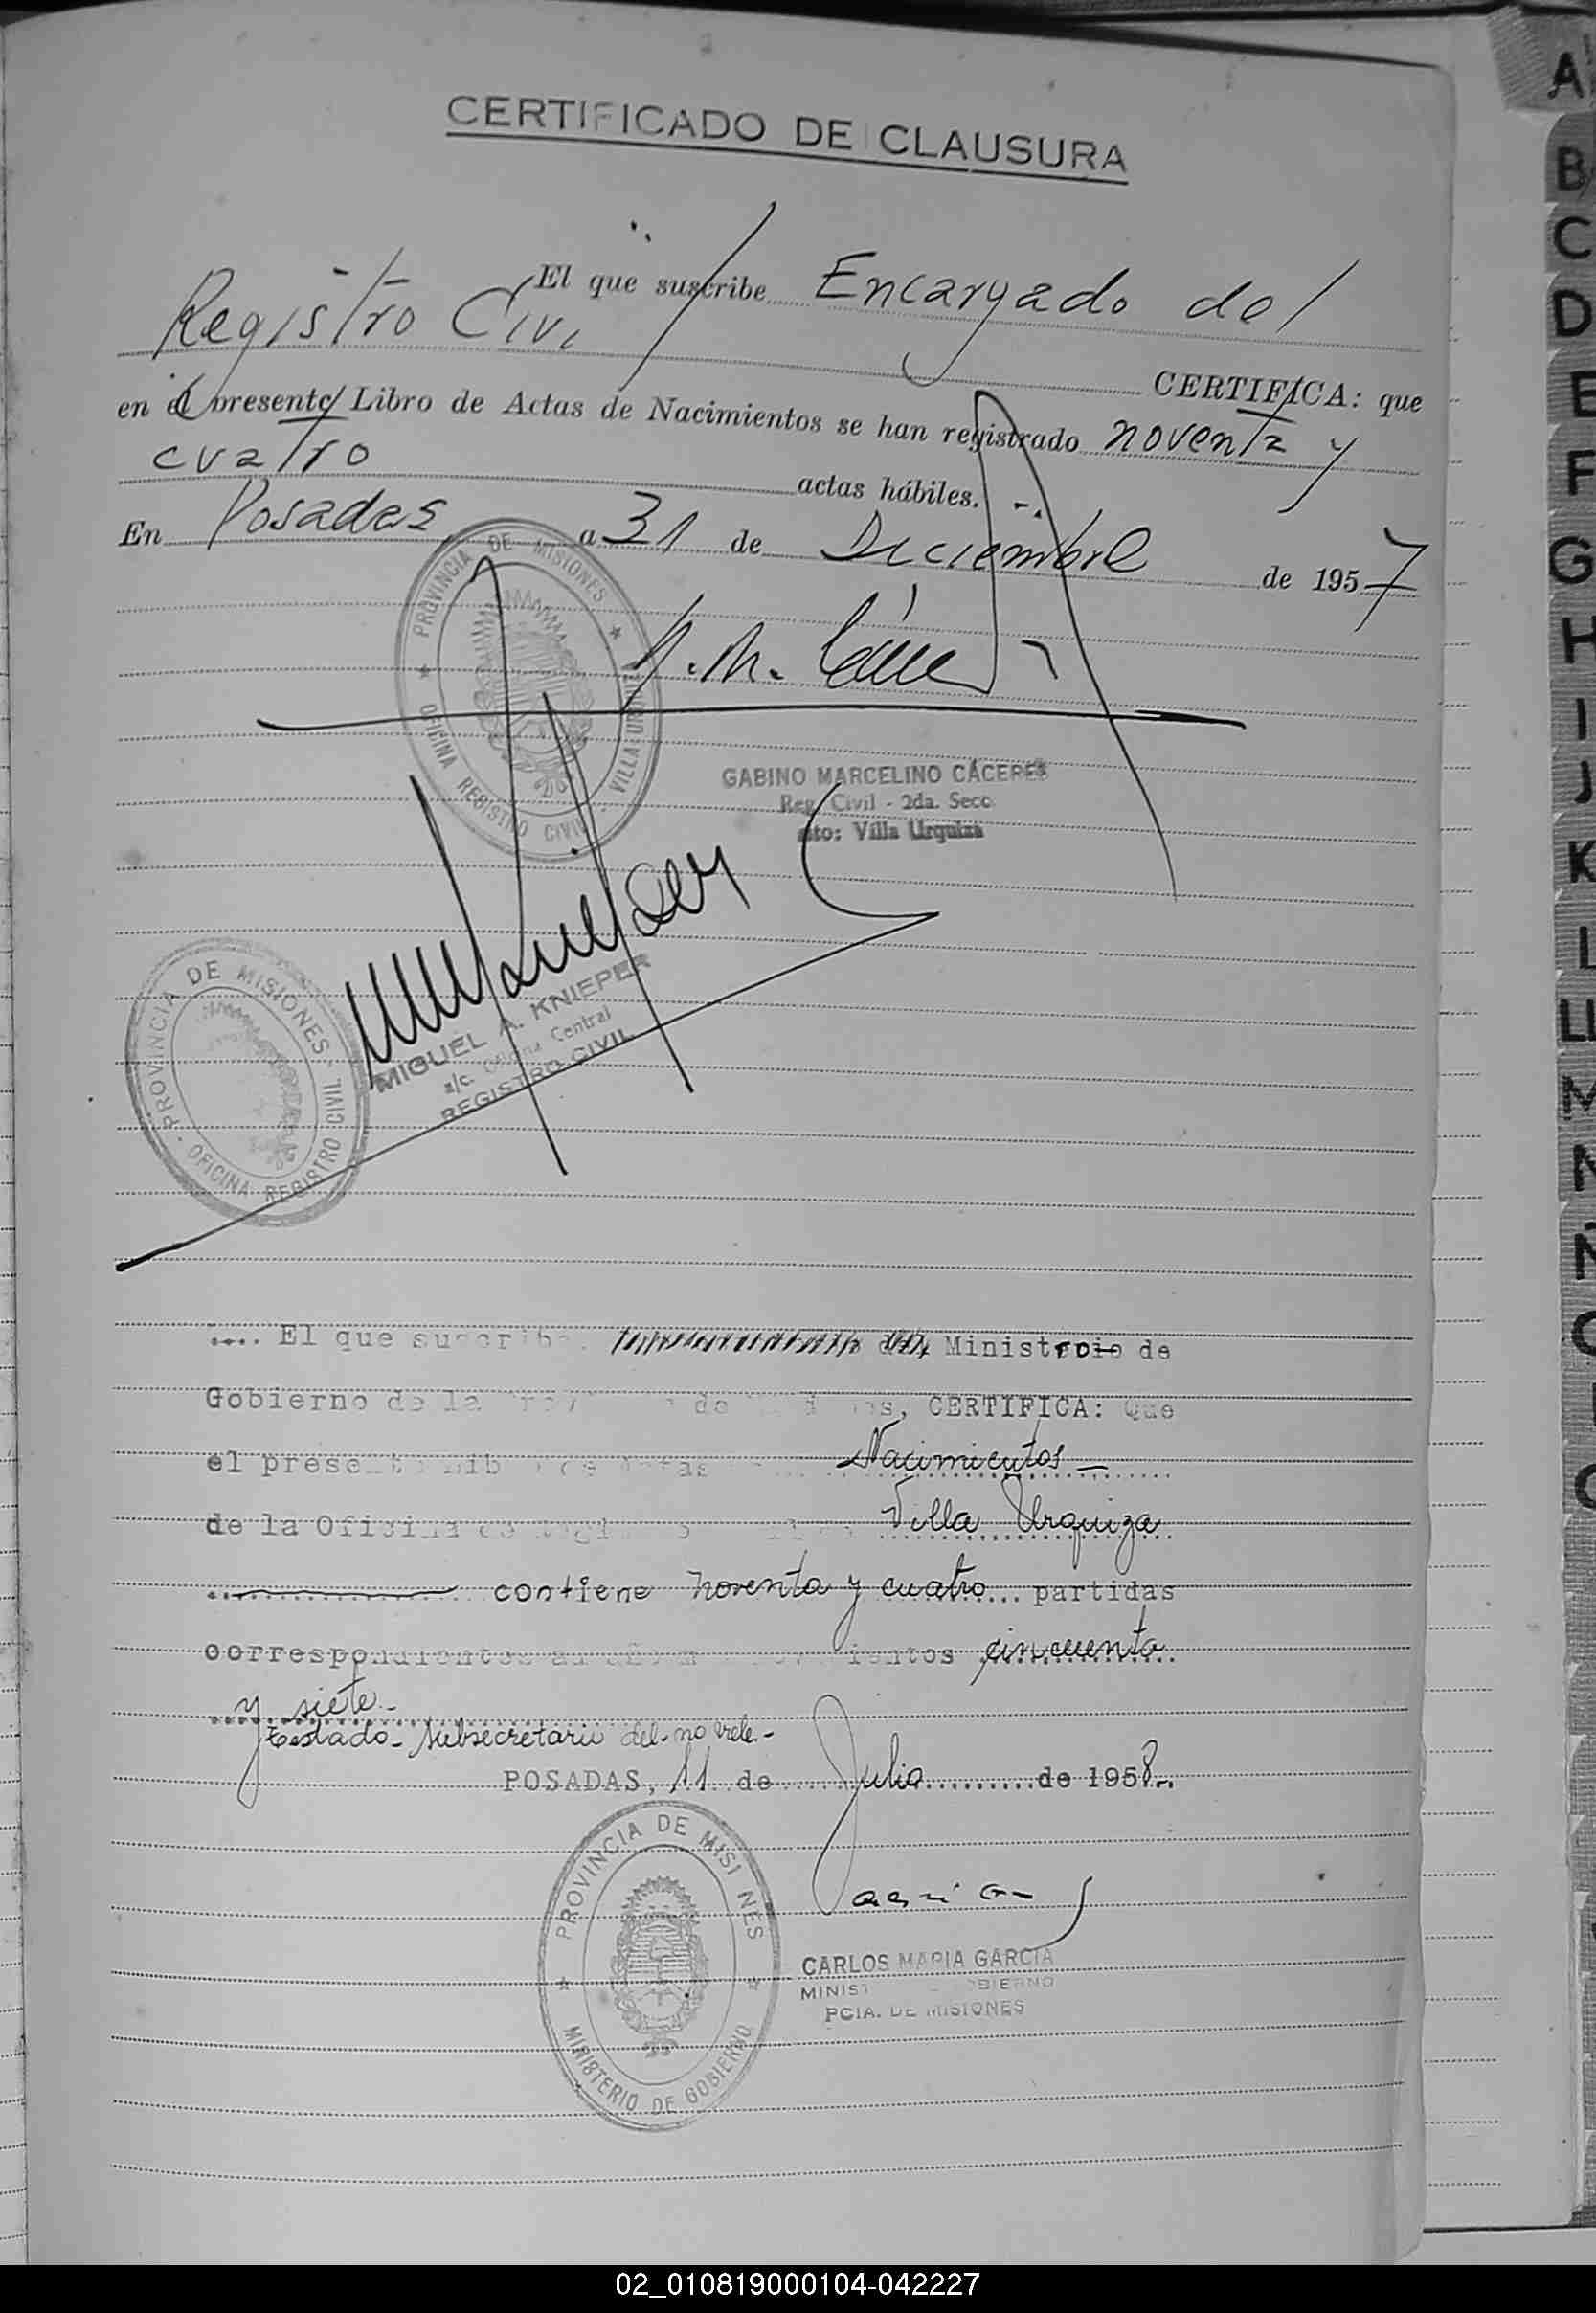 CERTIFICADO DE CLAUSURA
El que suscribe Encargado del
Registro Civil
CERTIFICA: que
en el presente Libro de Actas de Nacimientos se han registrado noventa y
cuatro actas hábiles. -.
En Posadas a 31 de Diciembre de 1957
PROVINCIA DE MISIONES
OFICINA REGISTRO CIVIL - VILLA URQUIZA
GABINO MARCELINO CÁCERES
Reg. Civil - 2da. Secc.
Villa Urquiza
PROVINCIA DE MISIONES
OFICINA REGISTRO CIVIL
MIGUEL A. KNIEPER
a/c. Oficina Central
REGISTRO CIVIL
.... El que suscribe Ministroio de
Gobierno de la de CERTIFICA: Que
el presente Nacimientos
de la Oficina de Villa Urquiza
contiene noventa y cuatro ... partidas
correspondientes al cincuenta
y siete.-
Testado- Subsecretario del- no vale.-
POSADAS, 11 de Julio de 1958.-
PROVINCIA DE MISIONES
MINISTERIO DE GOBIERNO
CARLOS MARIA GARCIA
MINIST OBIERNO
PCIA. DE MISIONES
A
B
C
D
E
F
G
H
I
J
K
L
LL
M
N
Ñ
O
02_010819000104-042227